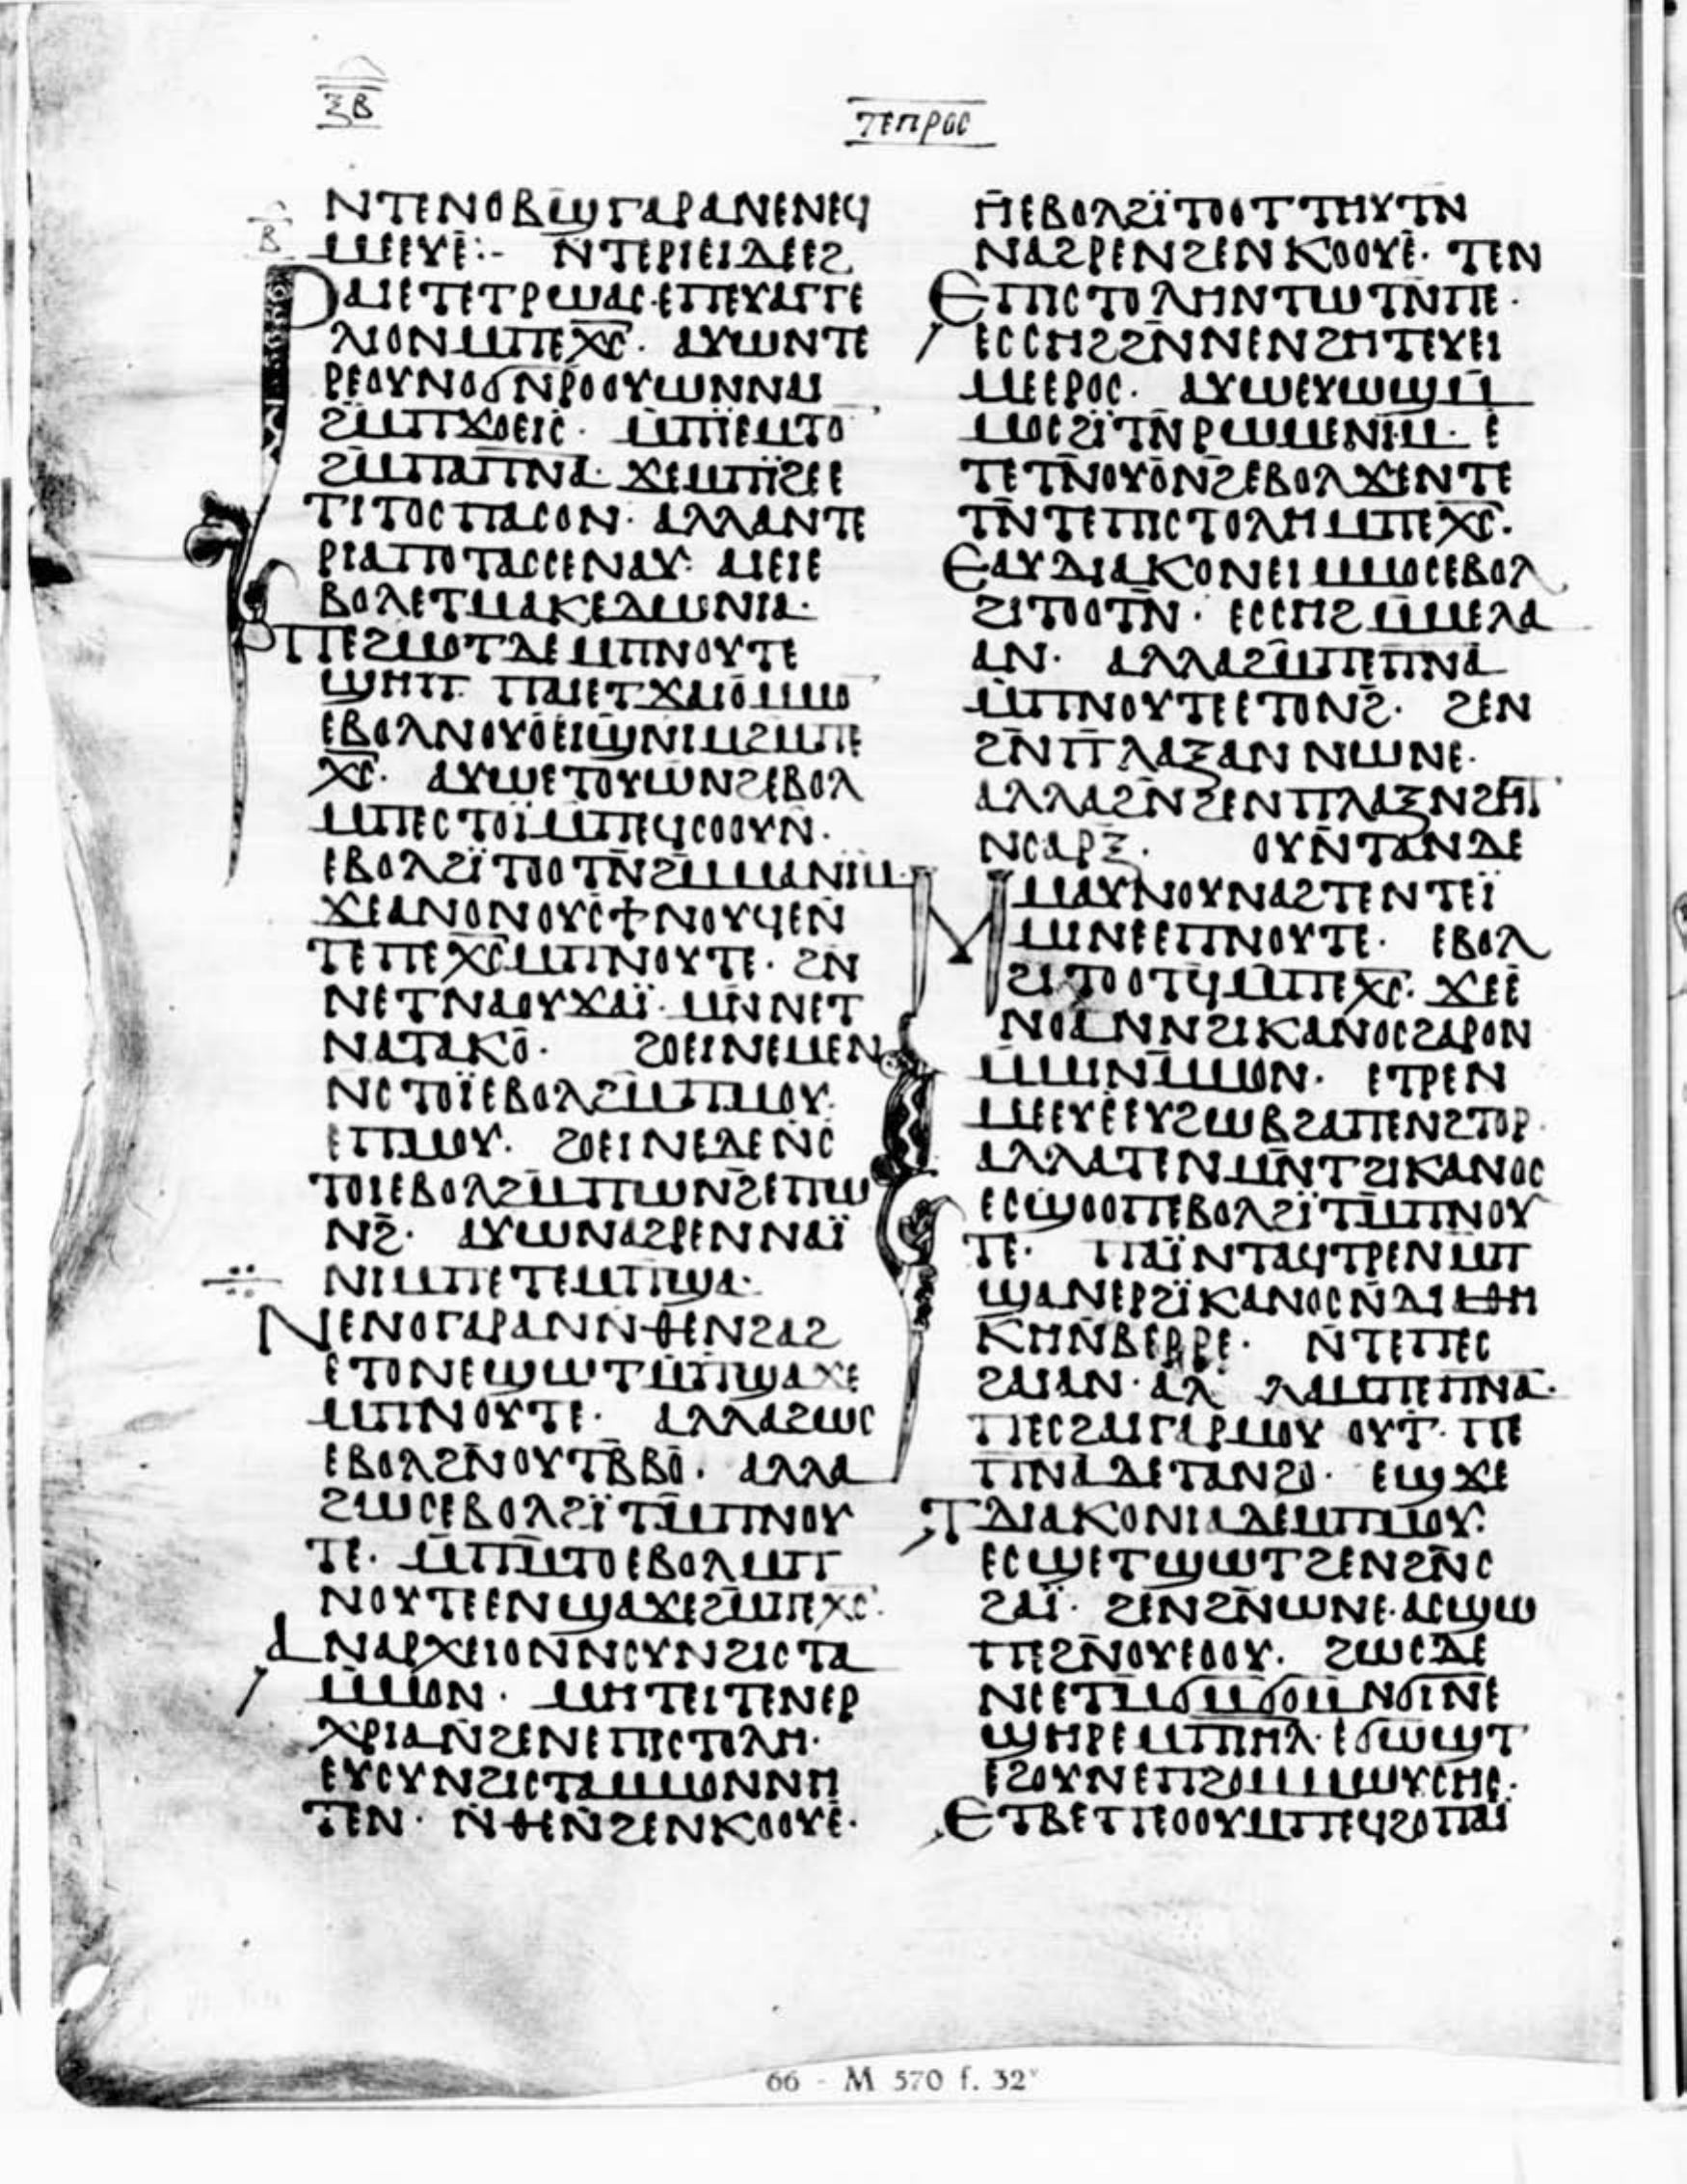 ⲝⲃ
ⲧⲉⲡⲣⲟⲥ
ⲃ
ⲛⲧⲉⲛⲟⲃϣ̅ⲅⲁⲣⲁⲛⲉⲛⲉϥ
ⲙⲉⲉⲩⲉ̄:- ⲛ̄ⲧⲉⲣⲓⲉⲓⲇⲉⲉϩ
ⲣⲁⲓⲉⲧⲉⲧⲣⲱⲁⲥ·ⲉⲡⲉⲩⲁⲅⲅⲉ
ⲗⲓⲟⲛⲙ̄ⲡⲉⲭ̅ⲥ̅· ⲁⲩⲱⲛⲧⲉ
ⲣⲉⲟⲩⲛⲟϭⲛ̄ⲣⲟⲟⲩⲱⲛⲛⲁⲓ
ϩⲙ̄ⲡϫⲟⲉⲓⲥ· ⲙ̄ⲡⲓ̈ⲉⲙⲧⲟ
ϩⲙ̄ⲡⲁⲡ̅ⲛ̅ⲁ̅· ϫⲉⲙⲡⲓ̈ϩⲉⲉ
ⲧⲓⲧⲟⲥⲡⲁⲥⲟⲛ· ⲁⲗⲗⲁⲛⲧⲉ
ⲣⲓⲁⲡⲟⲧⲁⲥⲥⲉⲛⲁⲩ· ⲁⲓⲉⲓⲉ
ⲃⲟⲗⲉⲧⲙⲁⲕⲉⲇⲱⲛⲓⲁ·
ⲡⲉϩⲙⲟⲧⲇⲉⲙ̄ⲡⲛⲟⲩⲧⲉ
ϣⲏⲡ· ⲡⲁⲓⲉⲧϫⲁⲓⲟ̄ⲙⲙⲟ
ⲉⲃⲟⲗⲛⲟⲩⲟ̄ⲉⲓϣⲛⲓⲙϩⲙⲡⲉ
ⲭ̅ⲥ̅· ⲁⲩⲱⲉⲧⲟⲩⲱⲛϩⲉⲃⲟⲗ
ⲙ̄ⲡⲉⲥⲧⲟⲓ̈ⲙ̄ⲡⲉϥⲥⲟⲟⲩⲛ̄·
ⲉⲃⲟⲗϩⲓ̈ⲧⲟⲟⲧⲛ̄ϩⲙ̄ⲙⲁⲛⲓⲙ·
ϫⲉⲁⲛⲟⲛⲟⲩⲥ̄ϯⲛⲟⲩϥⲉⲛ̄
ⲧⲉⲡⲉⲭ̅ⲥ̅ⲙ̄ⲡⲛⲟⲩⲧⲉ· ϩⲛ
ⲛⲉⲧⲛⲁⲟⲩϫⲁⲓ̈· ⲙⲛ̄ⲛⲉⲧ
ⲛⲁⲧⲁⲕⲟ̄· ϩⲟⲉⲓⲛⲉⲙⲉⲛ
ⲛⲥⲧⲟⲓ̈ⲉⲃⲟⲗϩⲙ̄ⲡⲙⲟⲩ·
ⲉⲡⲙⲟⲩ· ϩⲟⲉⲓⲛⲉⲇⲉⲛ̄ⲥ
ⲧⲟⲓⲉⲃⲟⲗϩⲙ̄ⲡⲱⲛϩ̄ⲉⲡⲱ
ⲛϩ̄· ⲁⲩⲱⲛⲁϩⲣⲉⲛⲛⲁⲓ̈
ⲛⲓⲙⲡⲉⲧⲉⲙ̄ⲡϣⲁ·
ⲛⲉⲛⲟⲅⲁⲣⲁⲛⲛⲑⲉⲛϩⲁϩ
ⲉⲧⲟⲛⲉϣϣⲧⲙ̄ⲡϣⲁϫⲉ
ⲙ̄ⲡⲛⲟⲩⲧⲉ· ⲁⲗⲗⲁϩⲱⲥ
ⲉⲃⲟⲗϩⲛ̄ⲟⲩⲧⲃ̄ⲃⲟ̄· ⲁⲗⲗⲁ
ϩⲱⲥⲉⲃⲟⲗϩⲓ̈ⲧⲙ̄ⲡⲛⲟⲩ
ⲧⲉ· ⲙ̄ⲡⲙ̄ⲧⲟⲉⲃⲟⲗⲙ̄ⲡ
ⲛⲟⲩⲧⲉⲉⲛϣⲁϫⲉϩⲙ̄ⲡⲉⲭ̅ⲥ̅·
ⲁⲛⲁⲣⲭⲉⲓⲟⲛⲛⲥⲩⲛϩⲓⲥⲧⲁ
ⲙ̄ⲙⲟⲛ· ⲙⲏⲧⲉⲓⲧⲉⲛⲉⲣ
ⲭⲣⲓⲁⲛ̄ϩⲉⲛⲉⲡⲓⲥⲧⲟⲗⲏ·
ⲉⲩⲥⲩⲛϩⲓⲥⲧⲁⲙ̄ⲙⲟⲛⲛⲏ
ⲧⲉⲛ· ⲛ̄ⲑⲉⲛ̄ϩⲉⲛⲕⲟⲟⲩⲉ̄·
ⲏ̄ⲉⲃⲟⲗϩⲓ̈ⲧⲟⲟⲧⲧⲏⲩⲧⲛ̄
ⲛⲁϩⲣⲉⲛϩⲉⲛⲕⲟⲟⲩⲉ̄· ⲧⲉⲛ
ⲉⲡⲓⲥⲧⲟⲗⲏⲛⲧⲱⲧⲛ̄ⲡⲉ·
ⲉⲥⲥⲏϩϩⲛ̄ⲛⲉⲛϩⲏⲧⲉⲩⲉⲓ
ⲙⲉⲉⲣⲟⲥ· ⲁⲩⲱⲉⲩⲱϣⲙ̄
ⲙⲟⲥϩⲓ̈ⲧⲛ̄ⲣⲱⲙⲉⲛⲓⲙ· ⲉ
ⲧⲉⲧⲛ̄ⲟⲩⲟ̄ⲛϩ̄ⲉⲃⲟⲗϫⲉⲛⲧⲉ
ⲧⲛ̄ⲧⲉⲡⲓⲥⲧⲟⲗⲏⲙ̄ⲡⲉⲭ̅ⲥ̅·
ⲉⲁⲩⲇⲓⲁⲕⲟⲛⲉⲓⲙ̄ⲙⲟⲥⲉⲃⲟⲗ
ϩⲓⲧⲟⲟⲧⲛ̄· ⲉⲥⲥⲏϩⲙ̄ⲙⲉⲗⲁ
ⲁⲛ· ⲁⲗⲗⲁϩⲙ̄ⲡⲉⲡ̅ⲛ̅ⲁ̅
ⲙ̄ⲡⲛⲟⲩⲧⲉⲉⲧⲟⲛϩ̄· ϩⲉⲛ
ϩⲛ̄ⲡⲗⲁⲝⲁⲛⲛⲱⲛⲉ·
ⲁⲗⲗⲁϩⲛ̄ϩⲉⲛⲡⲗⲁⲝⲛϩⲏⲧ
ⲛⲥⲁⲣⲝ̄· ⲟⲩⲛ̄ⲧⲁⲛⲇⲉ
ⲙⲙⲁⲩⲛⲟⲩⲛⲁϩⲧⲉⲛⲧⲉⲓ̈
ⲙⲓⲛⲉⲉⲡⲛⲟⲩⲧⲉ· ⲉⲃⲟⲗ
ϩⲓⲧⲟⲟⲧϥⲙ̄ⲡⲉⲭ̅ⲥ̅· ϫⲉⲉ̄
ⲛⲟⲁⲛⲛϩⲓⲕⲁⲛⲟⲥϩⲁⲣⲟⲛ
ⲙ̄ⲙⲓⲛⲙ̄ⲙⲟⲛ· ⲉⲧⲣⲉⲛ
ⲙⲉⲉⲩⲉ̄ⲉⲩϩⲱⲃϩⲁⲡⲉⲛϩⲧⲟⲣ·
ⲁⲗⲗⲁⲧⲉⲛⲙⲛ̄ⲧϩⲓⲕⲁⲛⲟⲥ
ⲉⲥϣⲟⲟⲡⲉⲃⲟⲗϩⲓ̈ⲧⲙ̄ⲡⲛⲟⲩ
ⲧⲉ· ⲡⲁⲓ̈ⲛⲧⲁϥⲧⲣⲉⲛⲙ̄ⲡ
ϣⲁⲛⲉⲣϩⲓ̈ⲕⲁⲛⲟⲥⲛ̄ⲇⲓⲁⲑⲏ
ⲕⲏⲛ̄ⲃⲉⲣⲣⲉ· ⲛ̄ⲧⲉⲡⲉⲥ
ϩⲁⲓⲁⲛ· ⲁⲗ ⲗⲁⲙ̄ⲡⲉⲡ̅ⲛ̅ⲁ̅·
ⲡⲉⲥϩⲁⲓⲅⲁⲣⲙⲟⲩ ⲟⲩⲧ· ⲡⲉ
ⲡ̅ⲛ̅ⲁ̅ⲇⲉⲧⲁⲛϩⲟ· ⲉϣϫⲉ
ⲧⲇⲓⲁⲕⲟⲛⲓⲁⲇⲉⲙ̄ⲡⲙⲟⲩ·
ⲉⲥϣⲉⲧϣⲱⲧϩⲉⲛϩⲛ̄ⲥ
ϩⲁⲓ̈· ϩⲉⲛϩⲛ̄ⲱⲛⲉ·ⲁⲥϣⲱ
ⲡⲉϩⲛ̄ⲟⲩⲉⲟⲟⲩ· ϩⲱⲥⲇⲉ
ⲛⲥⲉⲧⲙ̄ϭⲙ̄ϭⲟⲙⲛϭⲓⲛⲉ
ϣⲏⲣⲉⲙ̄ⲡⲏⲗ·ⲉϭⲱϣⲧ
ⲉϩⲟⲩⲛⲉⲡϩⲟⲙⲙⲱⲩⲥⲏⲥ·
ⲉⲧⲃⲉⲡⲉⲟⲟⲩⲙ̄ⲡⲉϥϩⲟⲡⲁⲓ
66 - M 570 f. 32ᵛ